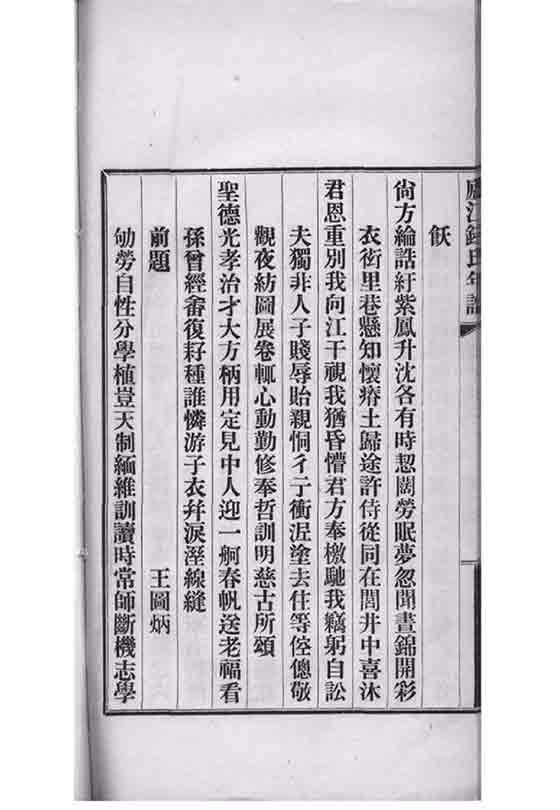 廬江錢氏年譜
飫
尙方綸誥紆紫鳳升沈各有時契闊勞眠夢忽聞晝錦開彩
衣衖里巷懸知懷瘠土歸途許侍從同在閭井中喜沐
君恩重別我向江干視我猶昏懵君方奉檄馳我竊躬自訟
夫獨非人子賤辱貽親恫彳亍衝泥塗去住等倥傯敬
觀夜紡圖展卷輒心動勤修奉哲訓明慈古所頌
聖德光孝治才大方柄用定見中人迎一舸春帆送老福看
孫曾經畬復耔種誰憐游子衣幷淚溼線縫
前題 王圖炳
劬勞自性分學植豈天制緬維訓讀時常師斷機志學